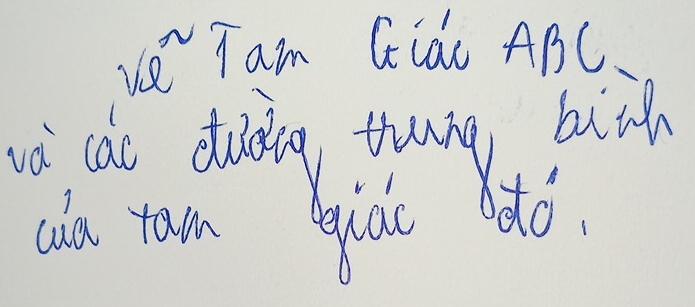 Vẽ Tam Giác ABC
và các đường trung bình
của tam giác đó.